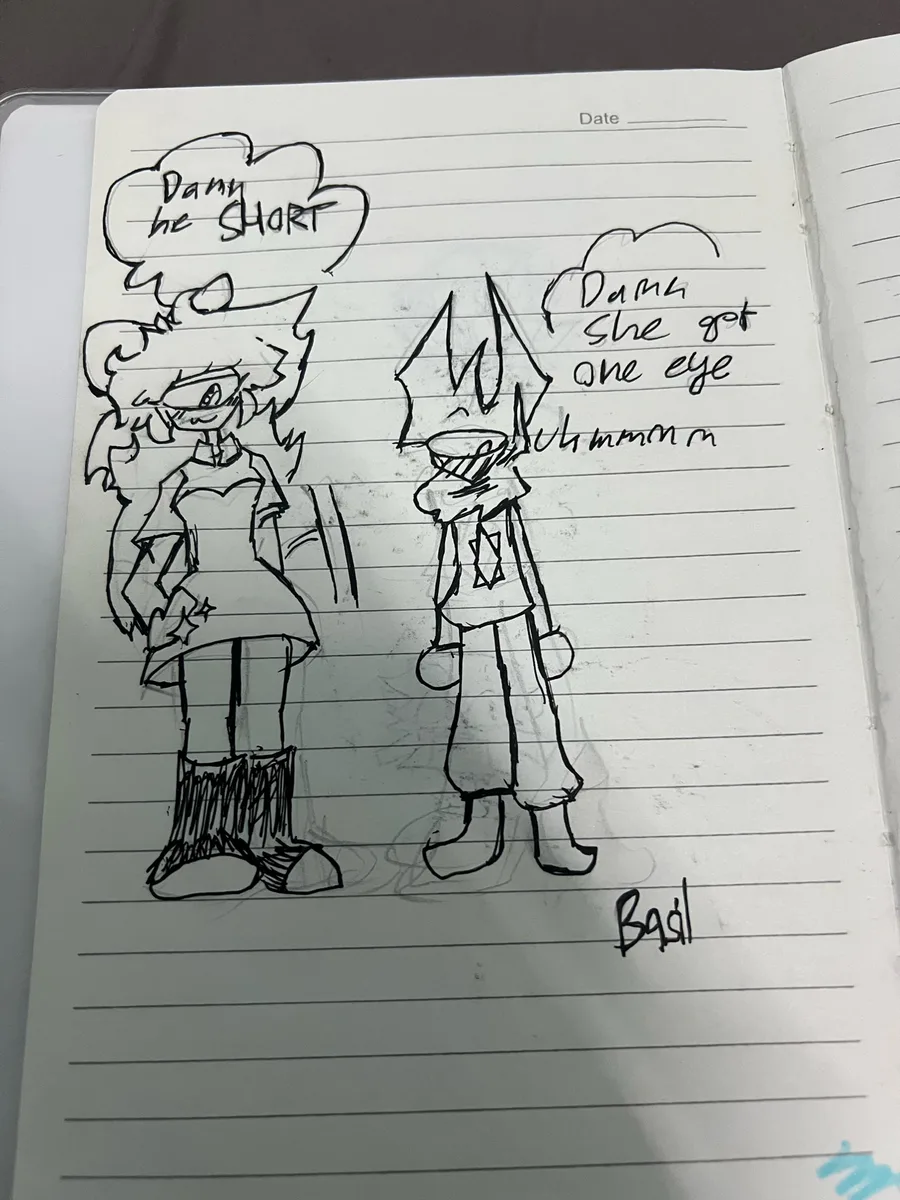 Date
Damn
he SHORT
Damn
She got
one eye
Uhmmmm
Basil